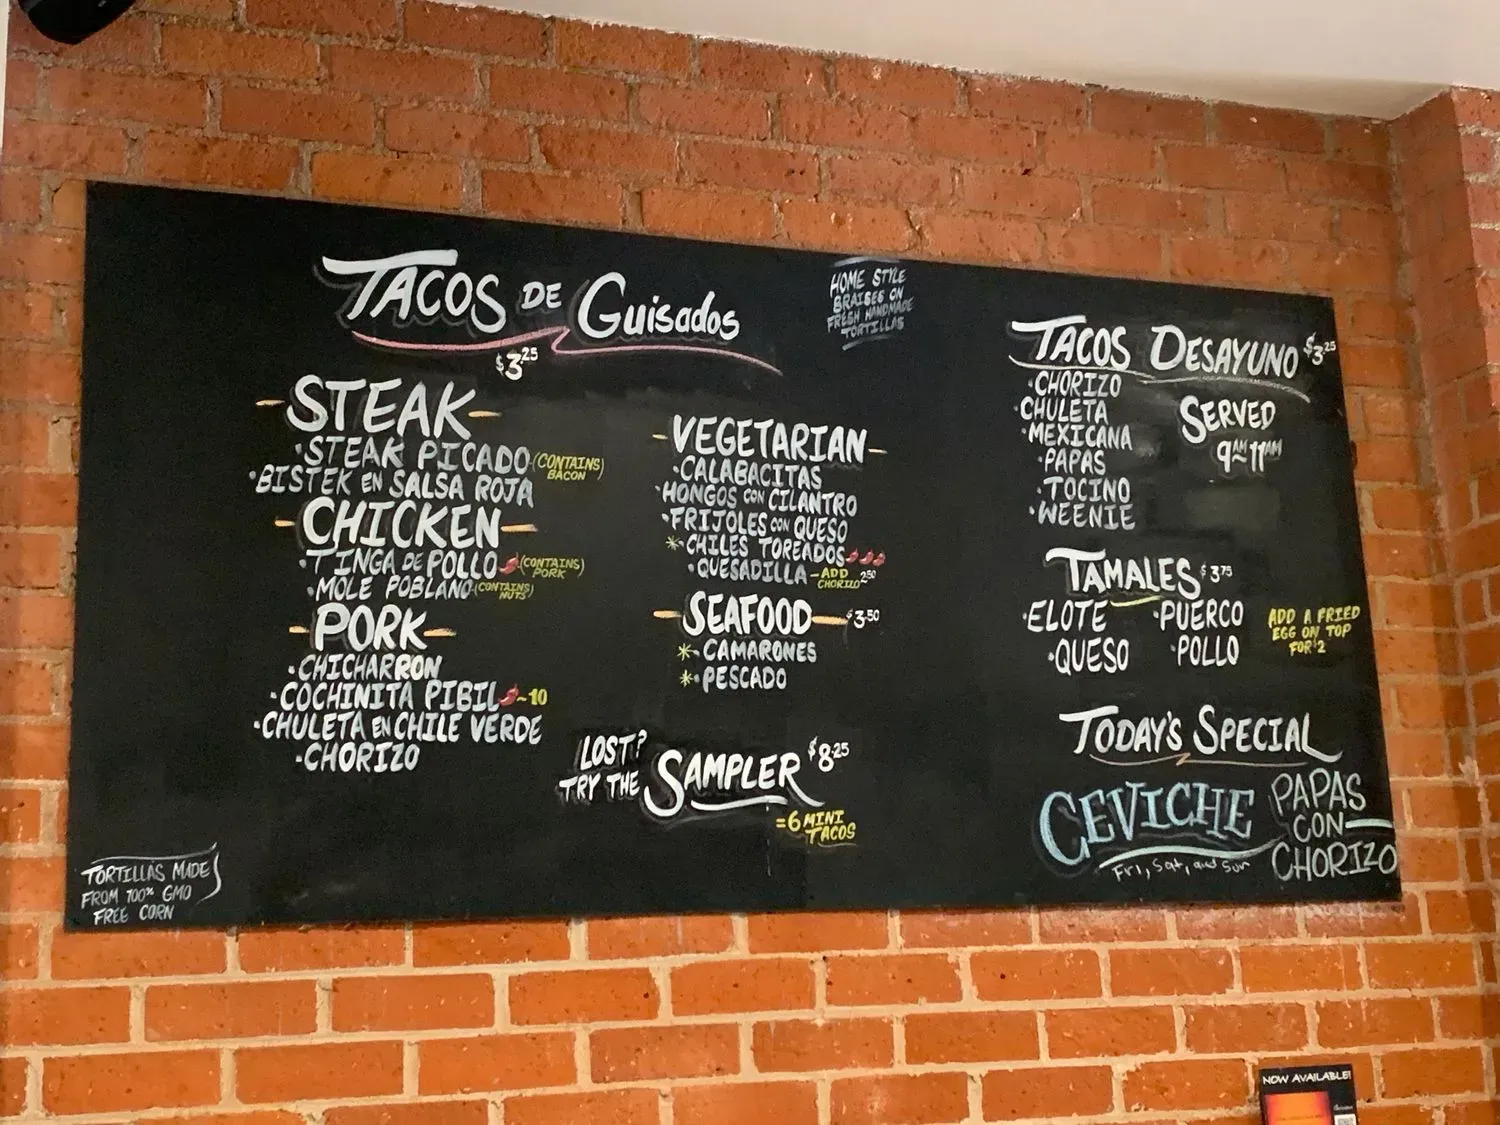 TACOS DE Guisados
$3.25
HOME STYLE
BRAISES ON
FRESH HANDMADE
TORTILLAS
-STEAK-
·STEAK PICADO (CONTAINS BACON)
·BISTEK EN SALSA ROJA
-CHICKEN-
·TINGA DE POLLO (CONTAINS PORK)
·MOLE POBLANO (CONTAINS NUTS)
-PORK-
·CHICHARRON
·COCHINITA PIBIL ~10
·CHULETA EN CHILE VERDE
·CHORIZO
-VEGETARIAN-
·CALABACITAS
·HONGOS CON CILANTRO
·FRIJOLES CON QUESO
*·CHILES TOREADOS
·QUESADILLA -ADD CHORIZO 2.50
-SEAFOOD- $3.50
*·CAMARONES
*·PESCADO
LOST?
TRY THE SAMPLER $8.25
=6 MINI
TACOS
TORTILLAS MADE
FROM 100% GMO
FREE CORN
TACOS DESAYUNO $3.25
·CHORIZO
·CHULETA
·MEXICANA
·PAPAS
·TOCINO
·WEENIE
SERVED
9AM-11AM
TAMALES $3.75
·ELOTE ·PUERCO
·QUESO ·POLLO
ADD A FRIED
EGG ON TOP
FOR $2
TODAY'S SPECIAL
CEVICHE
Fri, Sat, and Sun
PAPAS
CON
CHORIZO
NOW AVAILABLE!